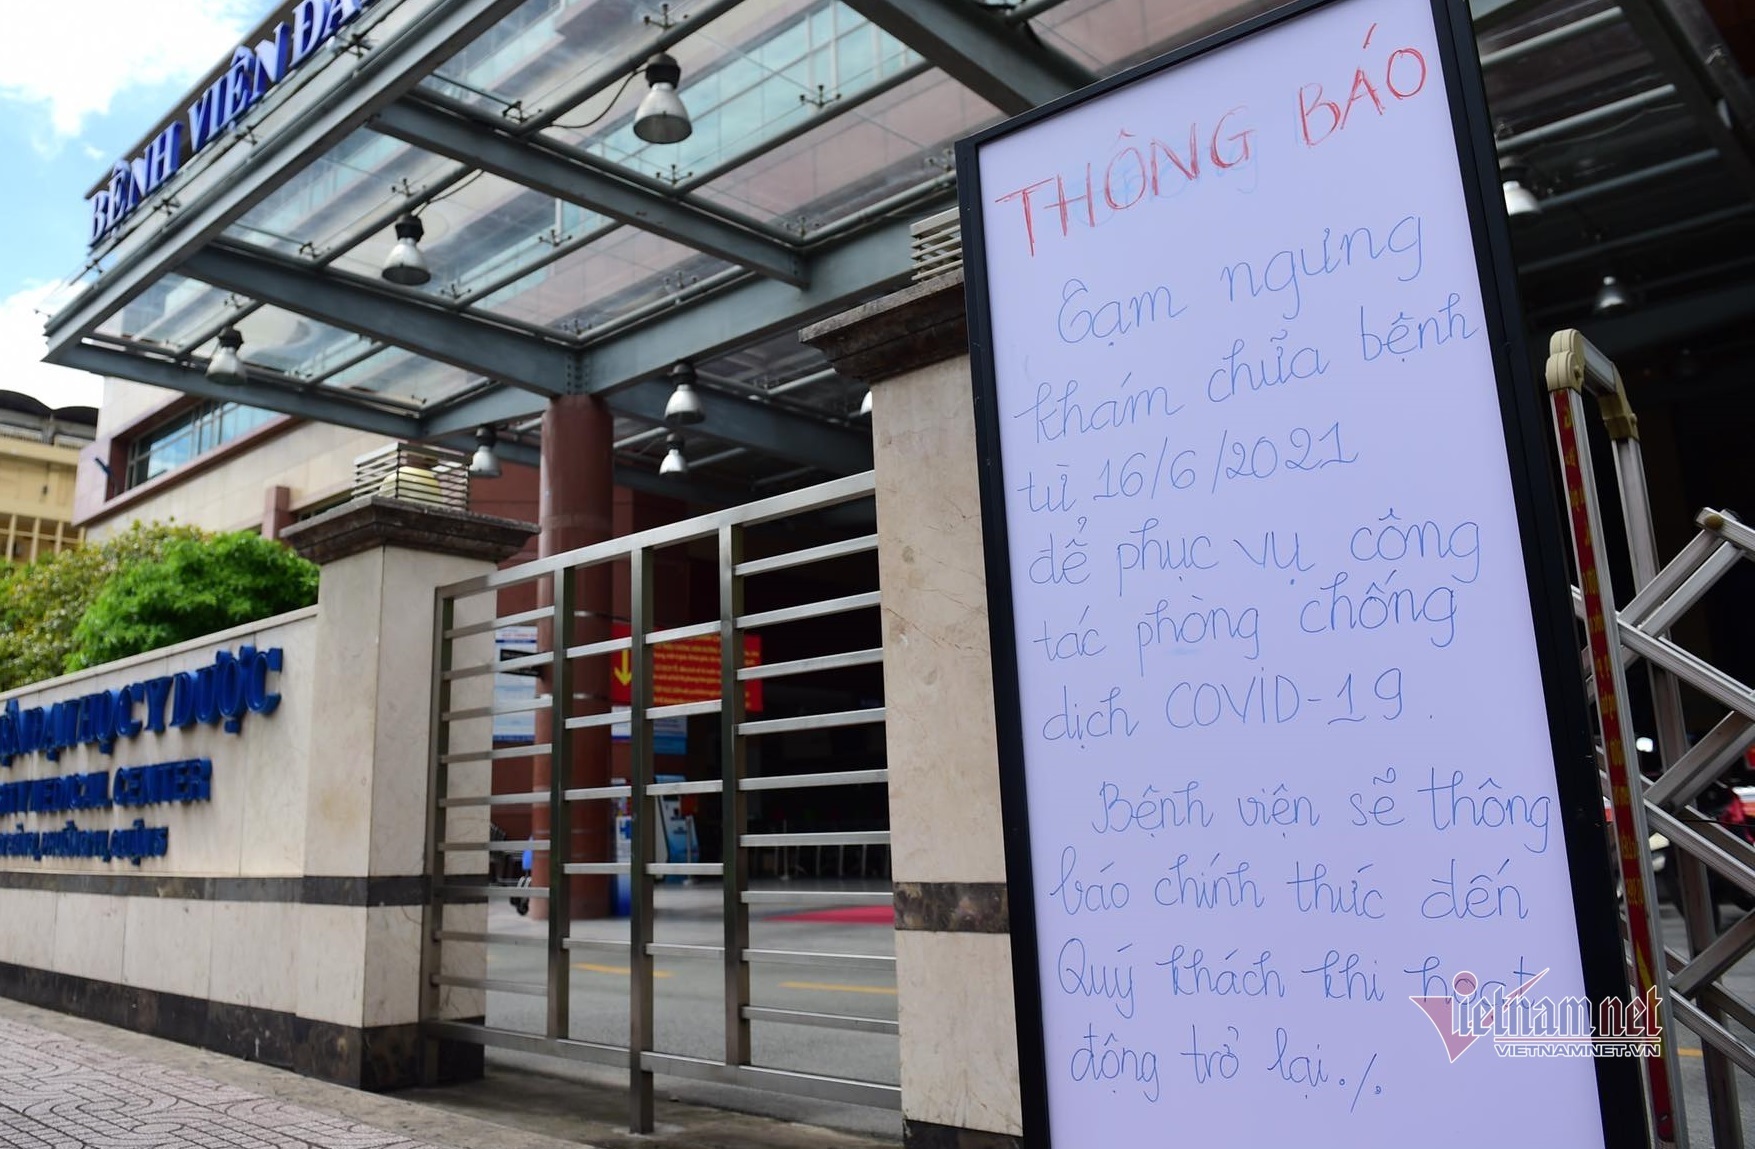 BỆNH VIỆN
ĐẠI HỌC Y DƯỢC
MEDICAL CENTER
THÔNG BÁO
Tạm ngưng
khám chữa bệnh
từ 16/6/2021
để phục vụ công
tác phòng chống
dịch COVID-19.
Bệnh viện sẽ thông
báo chính thức đến
Quý khách khi hoạt
động trở lại./.
Vietnamnet
VIETNAMNET.VN